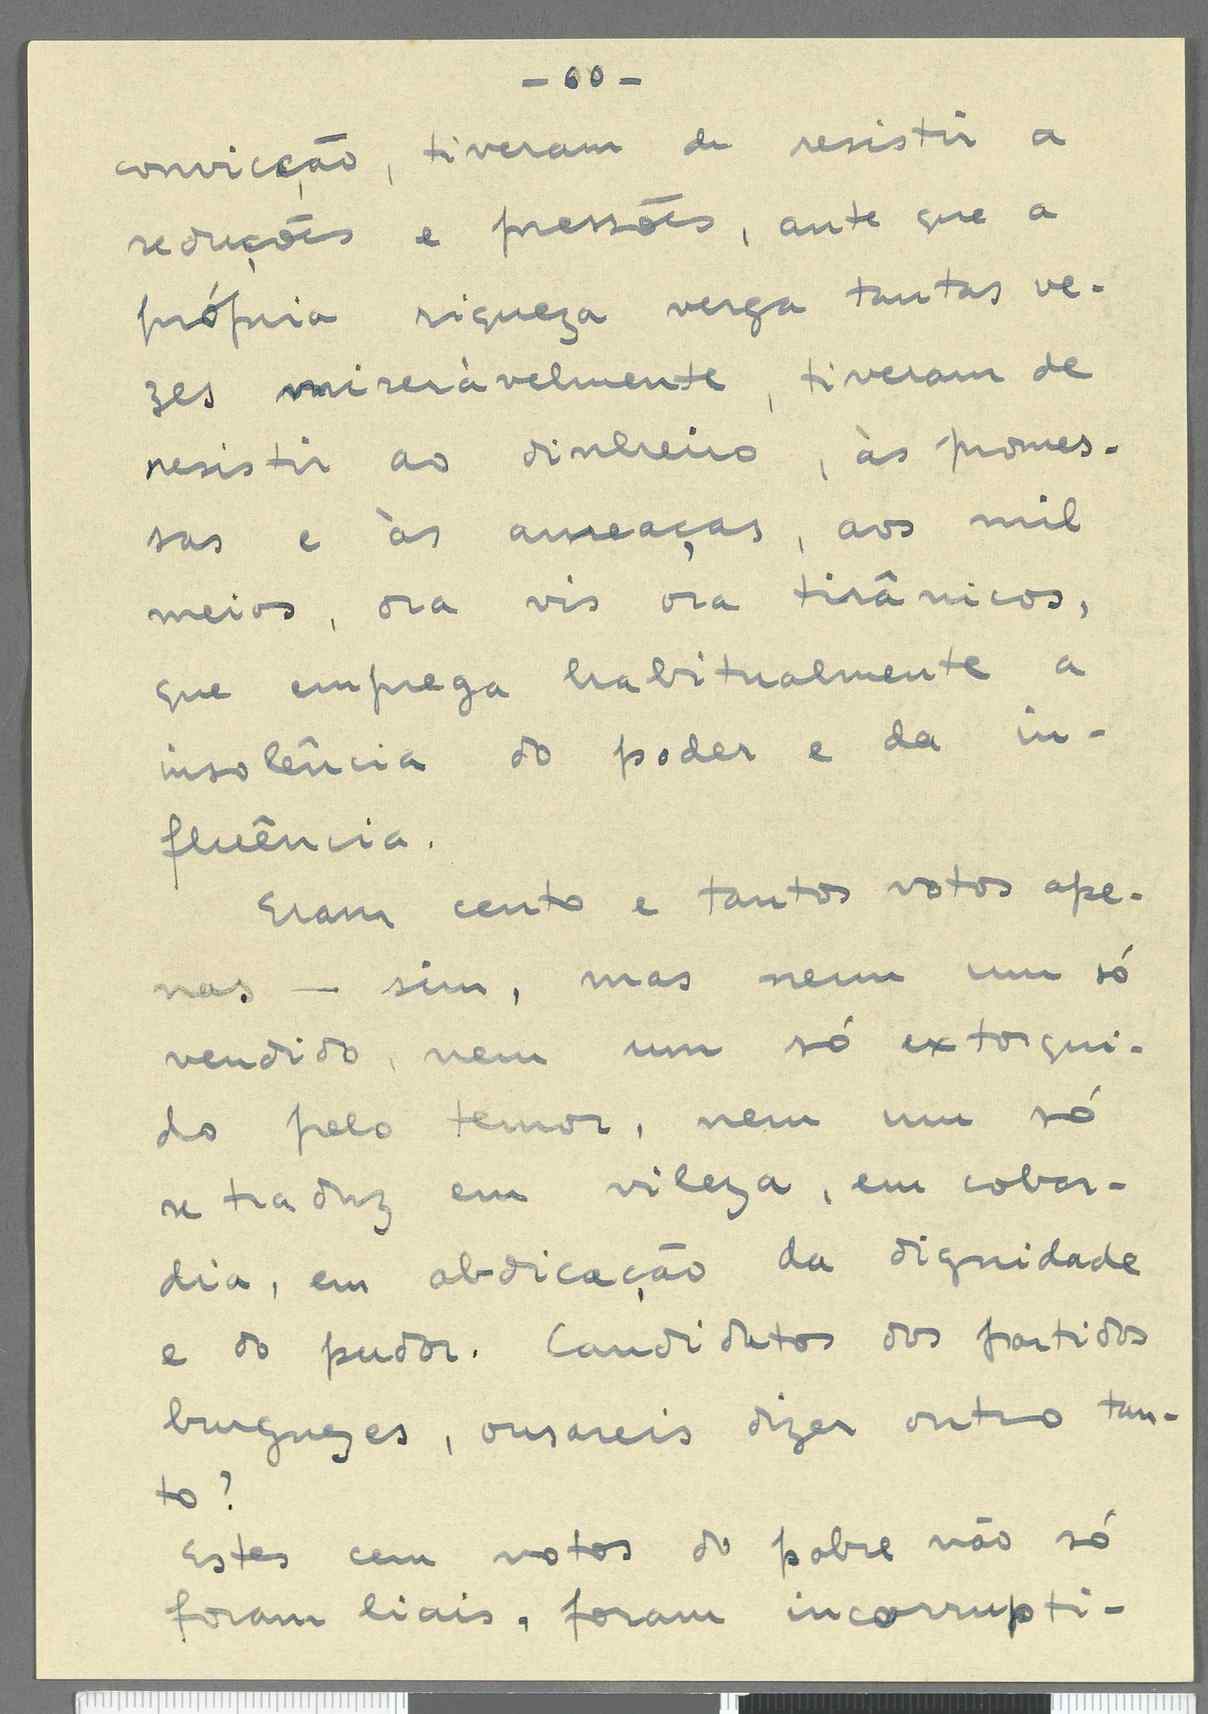 - 60 -
convicção, tiveram de resistir a
seduções e pressões, ante que a
própria riqueza verga tantas ve-
zes miseràvelmente, tiveram de
resistir ao dinheiro, às promes-
sas e às ameaças, aos mil
meios, ora vis ora tirânicos,
que emprega habitualmente a
insolência do poder e da in-
fluência.
Eram cento e tantos votos ape-
nas — sim, mas nem um só
vendido, nem um só extorqui-
do pelo temor, nem um só
se traduz em vileza, em cobar-
dia, em abdicação da dignidade
e do pudor. Candidatos dos partidos
burguezes, ousareis dizer outro tan-
to?
Estes cem votos do pobre não só
foram liais, foram incorrupti-